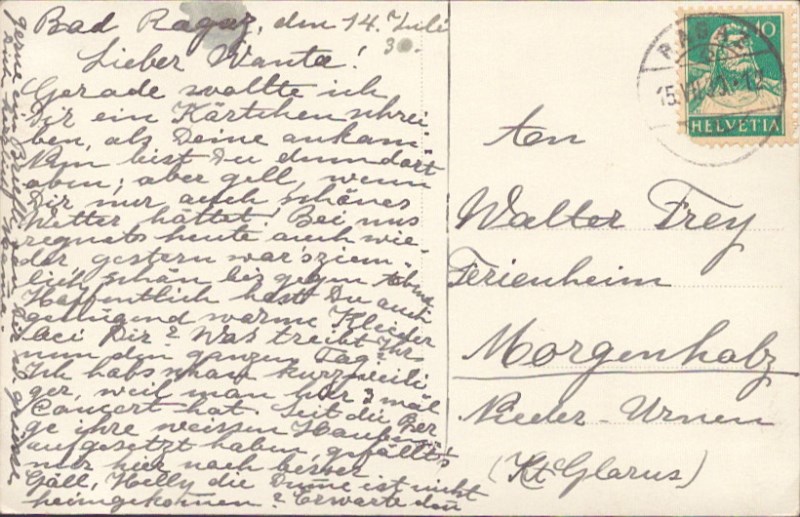 Bad Ragaz, den 14. Juli
30.
Lieber Wanta!
Gerade wollte ich
Dir ein Kärtchen schrei-
ben, als Deine ankam.
Nun bist Du denn dort
oben; aber gell, wenn
Dir nur auch schönes
Wetter hättet! Bei uns
regnats heute auch wie-
der, gestern war's ziem-
lich schön bis gegen Abend
Hoffentlich hast Du auch
genügend warme Kleider
bei Dir? Was treibt Ihrs
nun den ganzen Tag?
Ich habs schon kurzweili
ger, weil man hier 3 mal
Concert hat. Seit die Ber
ge ihre weissen Hauben
aufgesetzt haben, gefällt's
mir hier noch besser
Gäll, Helly die Dume ist nicht
heimgekommen? Erwarte den
gerne ein Brieflein
Dich herzlich
RAGAZ
15.VII.30.-12
10
HELVETIA
An
Walter Frey
Ferienheim
Morgenholz
Nieder-Urnen
(Kt. Glarus)